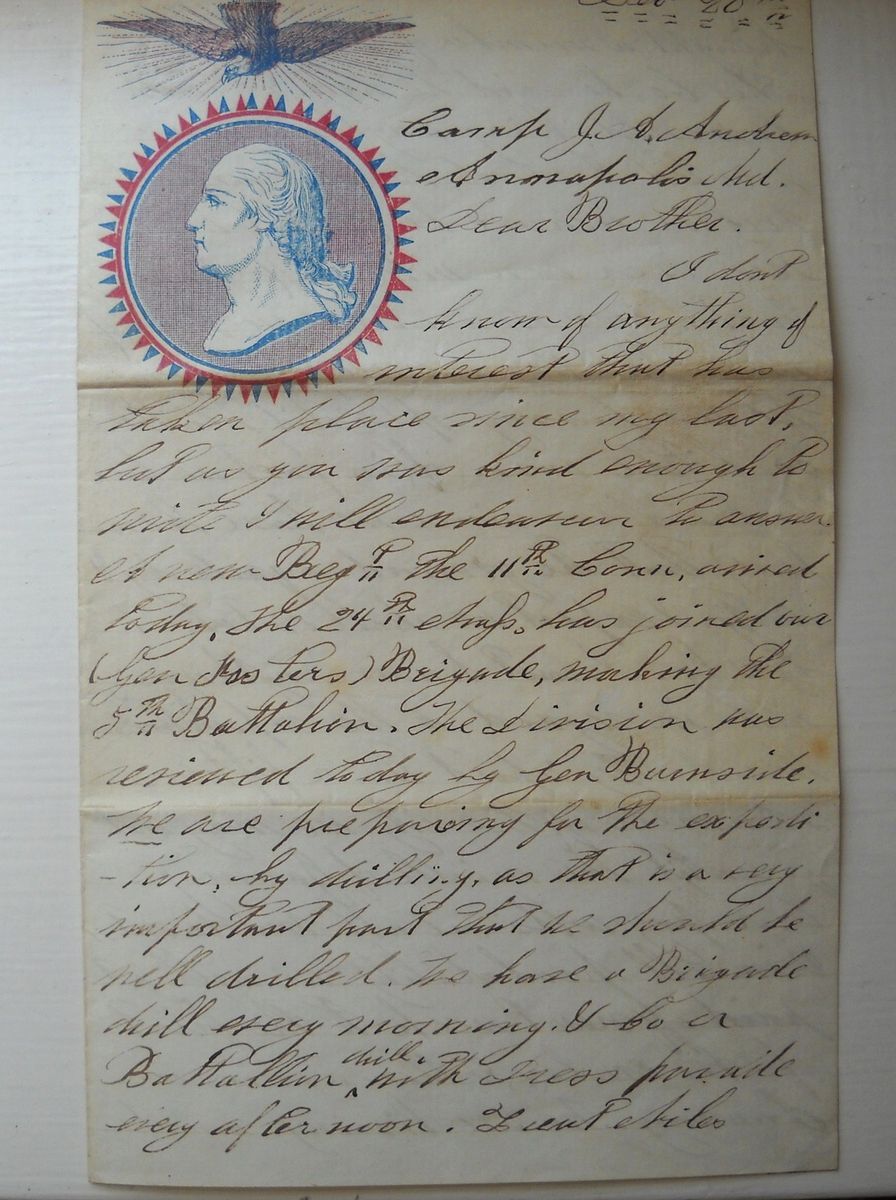 Dec 20th
Camp J. A. Andrew
Annapolis Md.
Dear Brother.
I dont
know of anything of
interest that has
taken place since my last,
but as you was kind enough to
write I will endeavour to answer.
A new Regt the 11th Conn, arived
today, The 24th Mass. has joined our
(Gen Fosters) Brigade, making the
5th Battalion. The Division was
reviewed today by Gen Burnside.
We are prepairing for the expedi
-tion, by drilling, as that is a very
important part that we should be
well drilled. We have a Brigade
drill every morning. & Co or
Battallion drill. with Dress parade
every afternoon. Lieut Niles